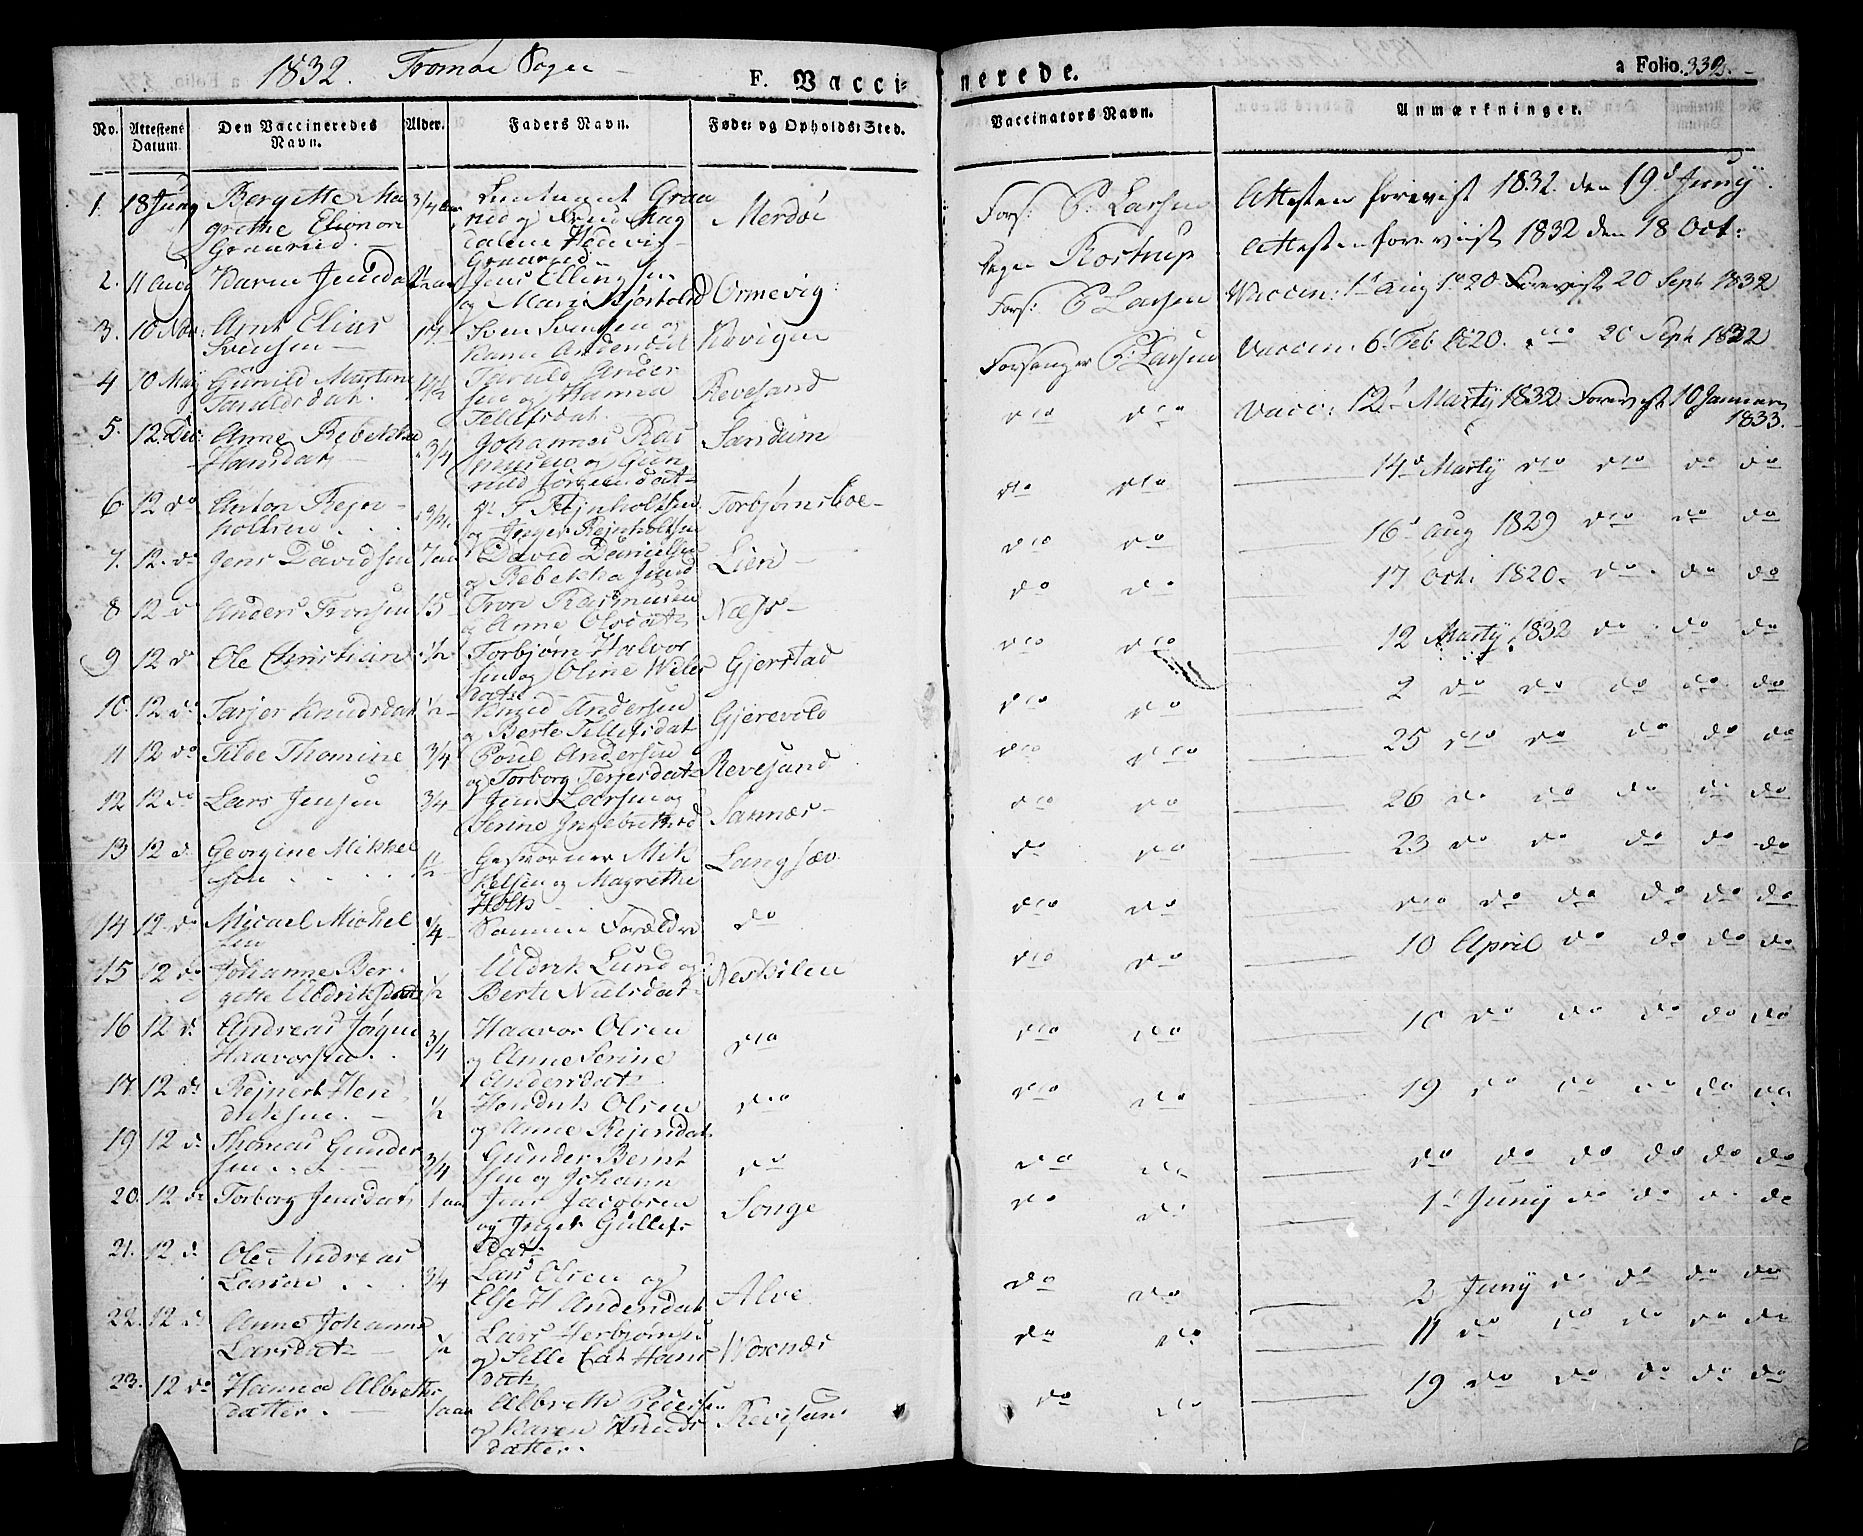 1832. Tromøe Sogn
F. Vaccinerede.
a Folio. 332.
No.
Attestens Datum
Den Vaccineredes Navn.
Alder.
Faders Navn.
Føde- og Opholds-Sted.
Vaccinators Navn.
Anmærkninger.
1. 18 Juny Bergitte Ma 3/4 aar Lieutenant Graa Merdøe Fors: S. Larsen Attesten forevist 1832. den 19d Juny.
grethe Elionore rud og Fru Mag
Graarud. dalene Hedevig
Graarud
2. 11 Aug Karen Jensdat Jens Ellingsen Ormevig: Rostrup Attesten forevist 1832 den 18 Oct:
og Maren
3. 10 Arnt Elias 14 Sven Svensen og Kovigen Fors: S. Larsen Vaccin: Aug 1820 Forevist 20 Sept 1832
Svensen Andersdat
4 10 May Gunild Martine Taruld Ander Revesand Forsanger S. Larsen Vaccin. 6 Feb 1820. do 20 Sept 1832
Taruldsdat. sen og Hanna
Tellefsdat.
5. 12. Dec: Anne Rebekke 3/4 Johannes Ras Sandum do do Vacc: 12 Martij 1832 Forevist 10 Januar 1833.
Hansdat musen og Gun
nild Jørgensdat
6 12 do Anton Rejn 3/4 Rejnholtsen Torbjørnsboe do do 14d Martij do do do do
holtsen og Inger Rejnholtsen
7. 12. do Jens Davidsen 7 aar David Danielsen Lien do do 16d Aug 1829 do do do
og Rebekka Jensd
8 12 d Anders Tronsen 15 Tron Rasmusen Næss do do 17 Oct: 1820. do do do
Anne Olsdat
9 12 d Ole Christian 1/2 Torbjørn Halvor Gjerstad do do 12 Martij 1832 do do do
sen og Oline
dat
10. 12 do Tarjer Knudsdat 1/2 Knud Andersen Gjerevold do do 2 do do do do do
Berte Tellefsdat
11 12 do Tilde Thomine 3/4 Poul Andersen Revesand do do 25 do do do do do
og Torborg Terjesdat
12 12 do Lars Jensen 3/4 Jens Larsen og Sannæs do do 26 do do do do do
Serine Ingebrethsd
13 12 d. Georgine Mikkel 1/2 Gesvorner Mik Langsæv do do 23 do do do do do
sen kelsen og Magrethe
Holth
14 12 do Micael Mickel 1/4 Samme Forældre do do do do do do do do do
sen
15 12 do Johanne Ber 1/2 Uldrik Lund og Neskilen do do 10 April do do do do
gette Uldriksdat Berte Nielsdat
16 12 d. Andreas Jørgen 3/4 Haavor Olsen do do do 10 do do do do do
Haavorsen. og Anne Serine
Andersdat
17. 12 do Rejnert Hen 1/2 Hendrik Olsen do do do 19 do do do do do
driksen. og Anne Rejersdat
19 12 d. Thomas Gunder 3/4 Gunder Bernt do do do do do do do do do
sen sen og Johann
20. 12 do Torborg Jensdat 1 aar Jens Jacobsen Songe do do 1d Juny do do do do
og Inger Gullefs
dat
21. 12 d. Ole Andreas 3/4 Lars Olsen og Alve do do 2 Juny do do do do
Larsen Else H Andersdat
22. 12 d Anne Johanne 1/2 Lars Herbjørnsen Woxnæs do do 11 do do do do do
Larsdat og Hans
dat
23. 12 do Hanna Albreths 1 aar Albreth Pedersen Revesand do do 19 do do do do do
datter. og Karen Knuds
datter.